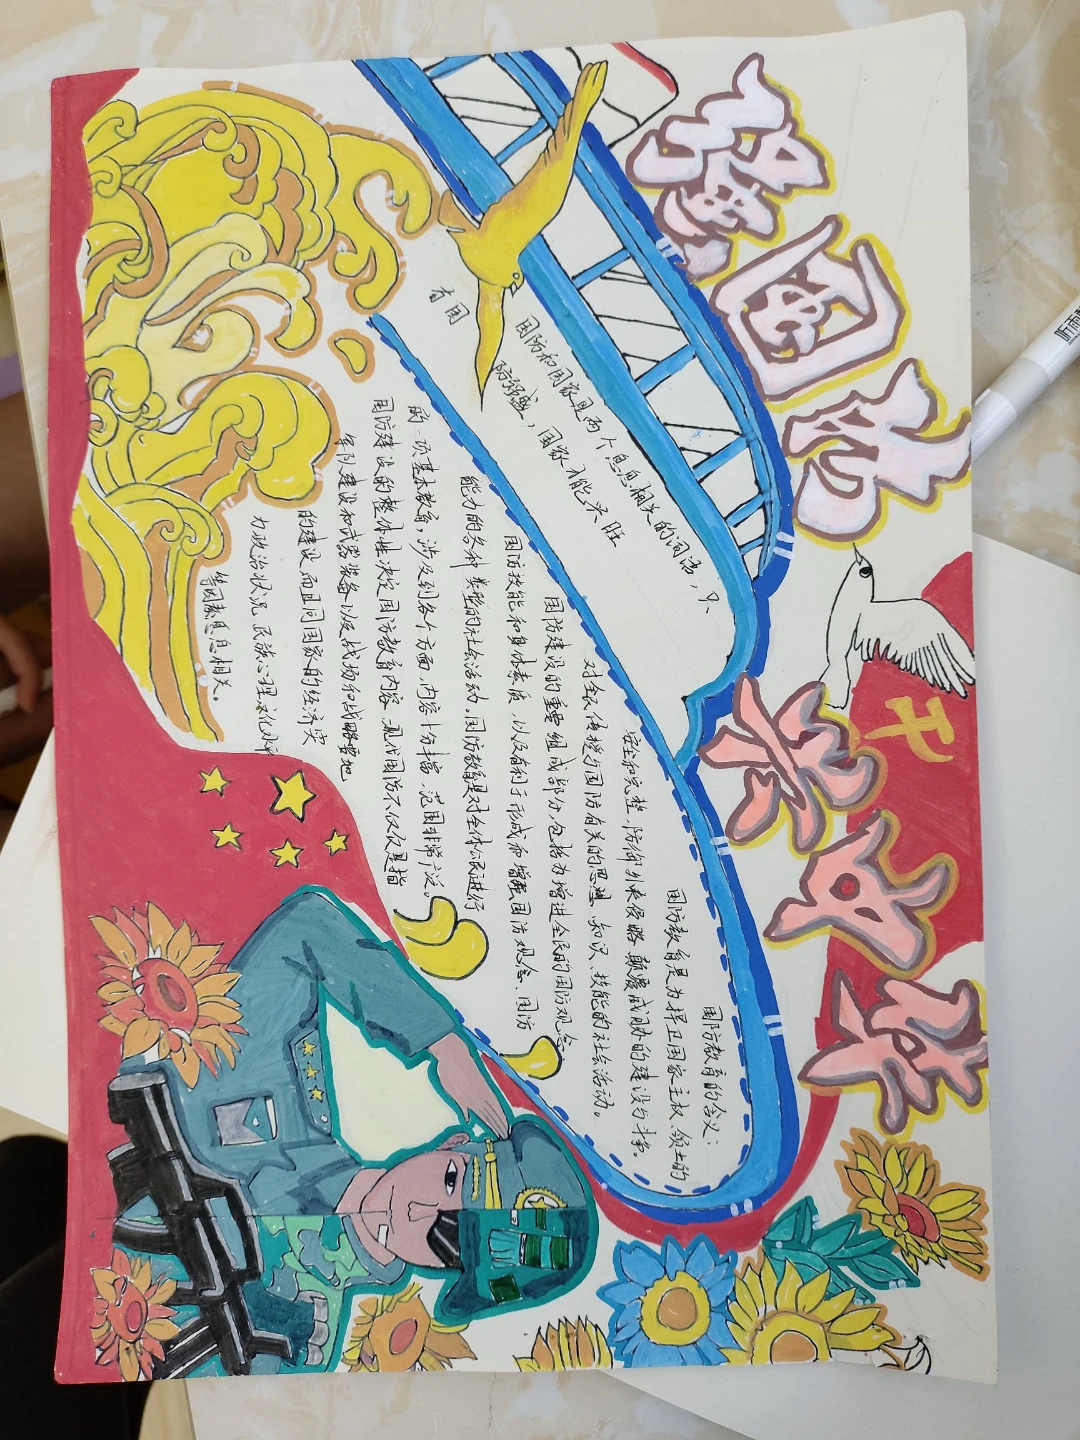 强国防
国防和国家是两个息息相关的词语，只
有国防强盛，国家才能兴旺
国防教育的含义：
国防教育是为捍卫国家主权、领土的
安全和完整，防御外来侵略、颠覆威胁的建设与斗争。
对全民传授与国防有关的思想、知识、技能的社会活动。
国防建设的重要组成部分，包括为增进全民的国防观念、
国防技能和身体素质，以及有利于形成和增强国防观念、国防
能力的各种类型的社会活动，国防教育是对全体公民进行
的一项基本教育，涉及到各个方面，内容十分丰富，范围非常广泛。
国防建设的整体性决定国防教育内容，现代国防不仅仅是指
军队建设和武器装备以及战场和战略基地
的建设，而且同国家的经济实
力、政治状况、民族心理、文化水平
等因素息息相关。